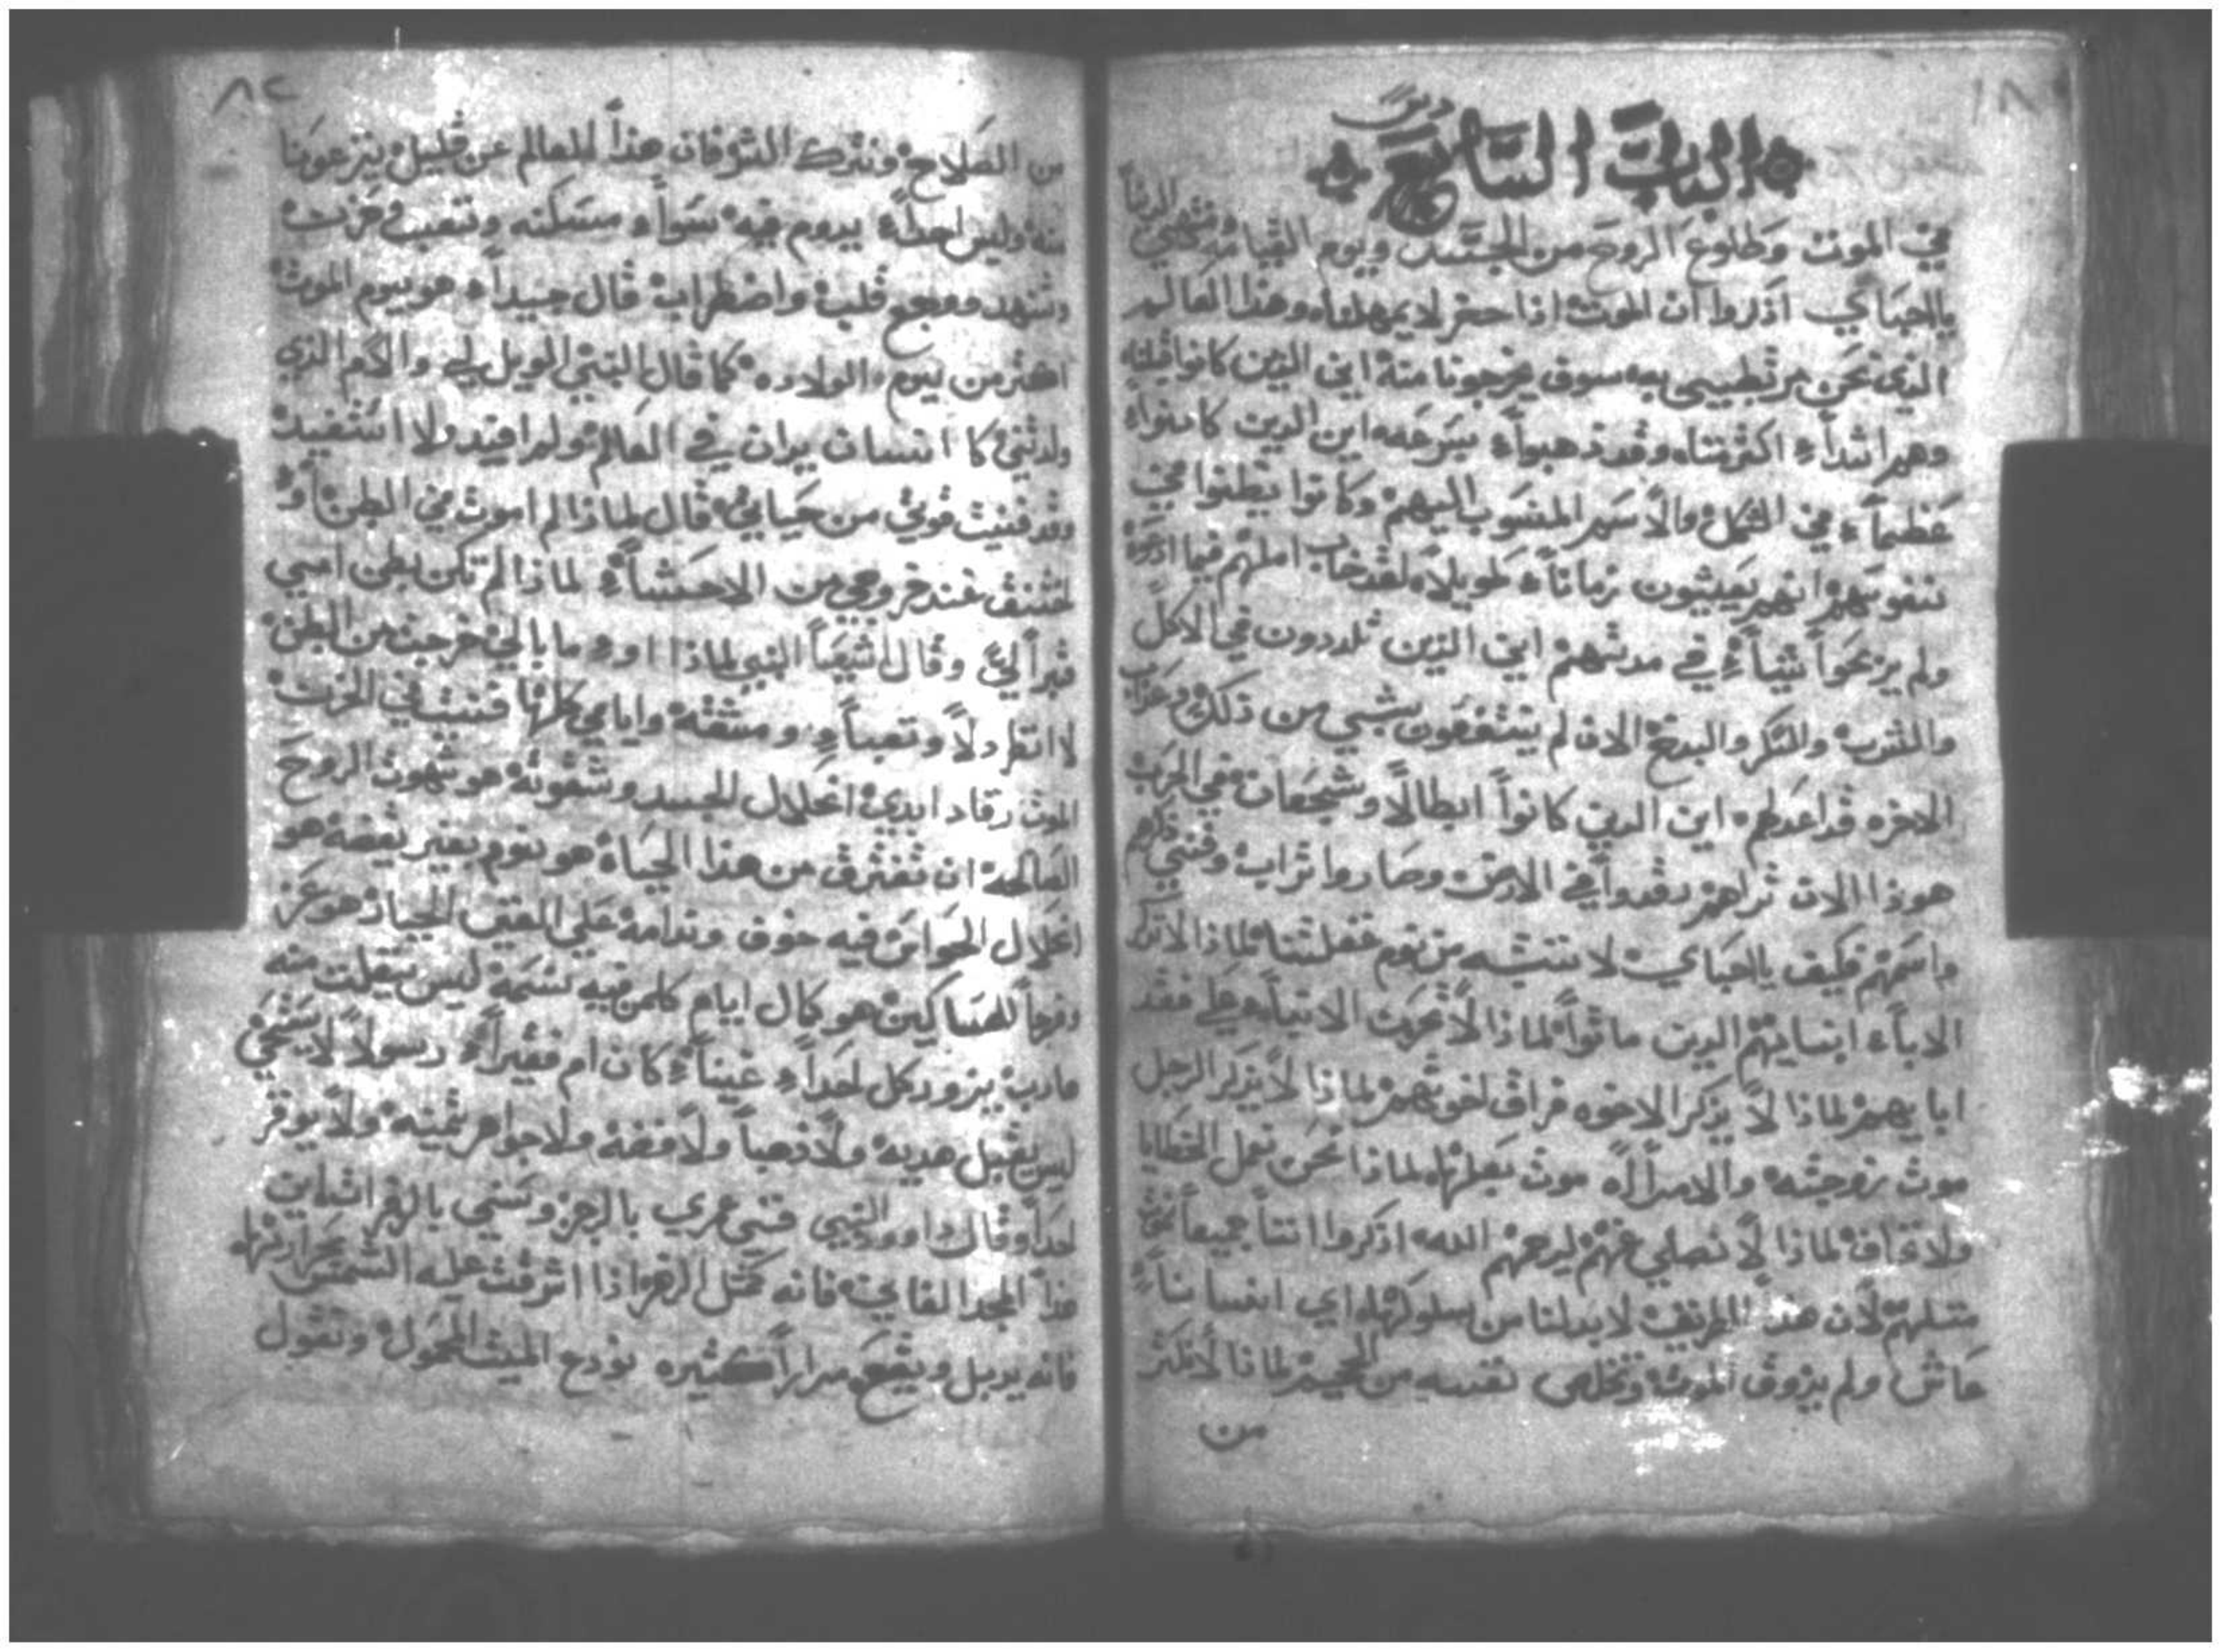 ٨١
الباب السابع
في الموت وطلوع الروح من الجسد ويوم القيامه ومنتهي الدنيا
ياحباي اذكروا ان الموت اذا حضر لا يمهلنا وهذا العالم
الذي نحن مرتبطيين به سوف يخرجونا منه اين الذين كانوا قبلنا
وهم اشداء اكثر منا وقد ذهبوا بسرعه اين الدين كانوا
عظيماً في الشكل والاسم المنسوب اليهم وكانوا يظنوا في
نفوسهم انهم يعيشون زماناً طويلاً لقد خاب املهم فيما
ولم يربحوا شياً في مدتهم اين الذين تلددون في الاكل
والشرب والسكر والبدخ الان لم ينتفعون بشي من ذلك وعذاب
الاخره قد اعد لهم اين الدين كانوا ابطالاً وشجعان في الحرب
هوذا الان تراهم رقدوا في الارض وصاروا تراب وفني ذكرهم
واسمهم فكيف ياحباي لا ننتبه من نوم غفلتنا لماذا لا تذكر
الاباء ابنايهم الدين ماتوا لماذا لا تحزن الابناء علي فقد
ابايهم لماذا لا يذكر الاخوه فراق اخوتهم لماذا لا يذكر الرجل
موت زوجته والامراه موت بعلها لماذا نحن نعمل الخطايا
ولا نخاف لماذا لا نصلي عنهم ليرحمهم الله اذكروا اننا جميعاً
مثلهم لان هذا الطريق لابد لنا من سلوكها اي انساناً
عاش ولم يزوق الموت وتخلص نفسه من الجحيم لماذا لا نكثر
من
٨٢
من الصلاح ونترك التوفان هذا العالم عن قليل ينزعونا
منه وليس احداً يدوم فيه سوا ومسكنه وتعب وحزن
وتنهد ووجع قلب واضطراب قال جيداً هو يوم الموت
اكثر من يوم الولاده كما قال النبي الويل لي والام الذي
ولدتني كا انسان يدان في العالم ولم افيد ولا استفيد
وقد فنيت قوتي من حياتي قال لماذا لم اموت في البطن او
عند خروجي من الاحشاء لماذا لم تكن بطن امي
قبراً لي وقال اشعيا النبي لماذا خرجت من البطن
لا انظر دلاً وتعباً ومشقه وايامي كلها فنيت في الحزن
الموت رقاد ابدي انحلال الجسد هو شهوت الروح
الصالحه ان تفترق من هذا الحياه هو نوم بغير يقضه هو
انحلال الحواس فيه خوف وندامه علي المغني الحياه هو عز
وفرحاً للمساكين هو كال ايام كلمن فيه نسمه ليس ينفلت منه
هارب يزور كل احداً غنياً كان ام فقيراً رسولاً لا يستحي
ليس يقبل هديه ولا ذهباً ولا فضه ولا جواهر ثمينه ولا يوقر
احداً وقال داوود النبي فني عمري بالحزن وسني بالزفرات
هذا المجد الفاني فانه كمثل الزهر اذا اشرقت عليه الشمس بحرارتها
فانه يدبل ويقع مراراً كثيره نودع الميت المحمول ونقول